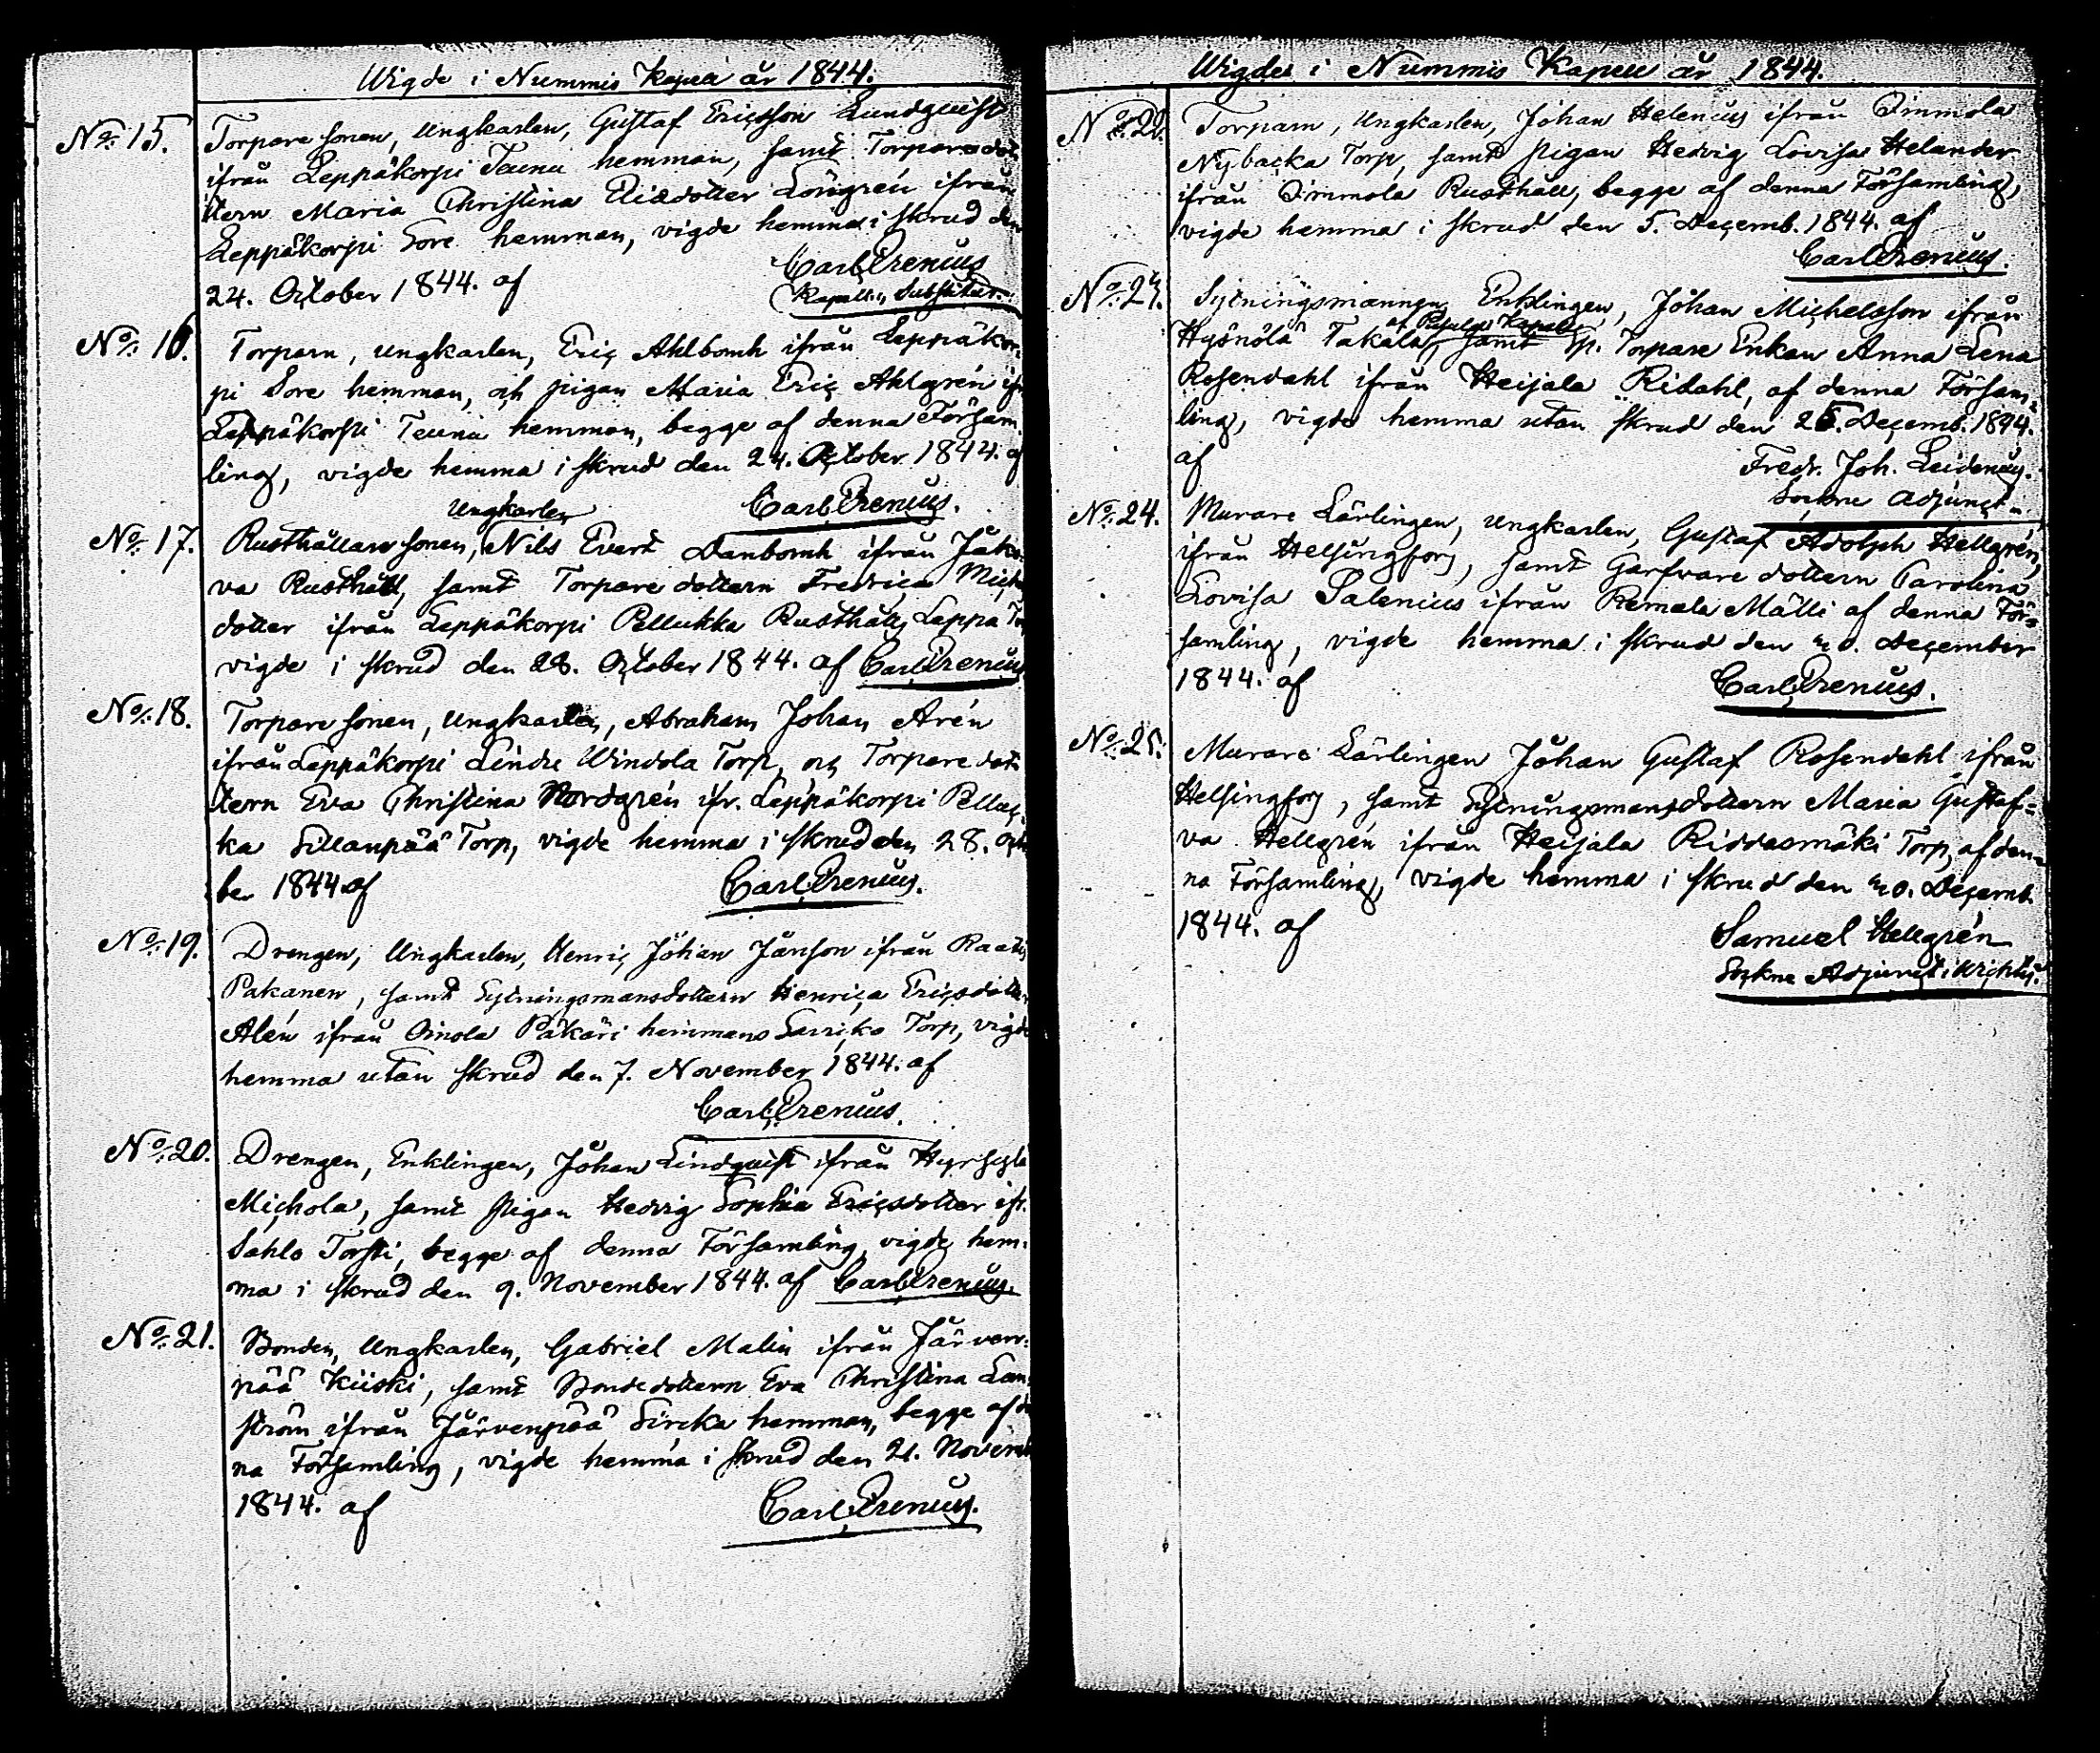 Wigde i Nummis Kapell år 1844.
No: 15. Torpare sonen, Ungkarlen, Gustaf Ericsson Lundquist
ifrån Leppäkorpi Teunu hemman, samt Torpare dot-
tern Maria Christina Eliedotter Löngrén ifrån
Leppäkorpi Sore hemman, vigde hemma i skrud den
24. October 1844. af Carl Prenius
Kapells Substitut.
No: 16. Torparn, Ungkarlen, Eric Ahlbomh ifrån Leppäkor-
pi Sore hemman, och pigan Maria Eric Ahlgrén ifr.
Leppäkorpi Teunu hemman, begge af denna Försam-
ling, vigde hemma i skrud den 24. October 1844. af
Carl Prenius.
No: 17. Rusthållare sonen, Ungkarlen Nils Evert Danbomh ifrån Jako-
va Rusthåll, samt Torpare dottern Fredrica Mich
dotter ifrån Leppäkorpi Pellukka Rusthålls Lappa To
vigde i skrud den 28. October 1844. af Carl Prenius
No: 18. Torpare sonen, Ungkarlen, Abraham Johan Arén
ifrån Leppäkorpi Lindre Windola Torp, och Torpare dot-
tern Eva Christina Nordgrén ifr. Leppäkorpi Pelluc-
ka Sillanpää Torp, vigde hemma i skrud den 28. Octo
ber 1844 af Carl Prenius.
No: 19. Drengen, Ungkarlen, Henric Johan Jånson ifrån Raatis
Pakanen, samt Sytningsmansdottern Henrica Ericsdotter
Alén ifrån Oinola Päkäri hemmans Sarriko Torp, vigde
hemma utan skrud den 7. November 1844. af
Carl Prenius.
No: 20. Drengen, Enklingen, Johan Lindquist ifrån Hyrsylä
Michola, samt pigan Hedvig Sophia Ericsdotter ifr.
Sahlo Torsti, begge af denna Församling, vigde hem-
ma i skrud den 9. November 1844. af Carl Prenius.
No: 21. Bonden, Ungkarlen, Gabriel Malin ifrån Järven-
pää Kiiski, samt Bondedottern Eva Christina Lan-
ström ifrån Järvenpää Sircka hemman, begge af den
na Församling, vigde hemma i skrud den 21. Novemb
1844. af Carl Prenius.
Wigde i Nummis Kapell år 1844.
No: 22. Torparn, Ungkarlen, Johan Helenius ifrån Immola
Nybacka Torp, samt pigan Hedvig Lovisa Helander
ifrån Immola Rusthåll, begge af denna Församling,
vigde hemma i skrud den 5. Decemb. 1844. af
Carl Prenius.
No: 23. Sytningsmannen, Enklingen, Johan Michelsson ifrån
Hyönölä Takala, af Pusula Kapell, samt Sp. Torpare Enkan Anna Lena
Rosendahl ifrån Heijala Ridahl, af denna Försam-
ling, vigde hemma utan skrud den 26. Decemb. 1844.
af Fredr. Joh. Leidenius.
Sockne Adjunct.
No: 24. Murare Lärlingen, Ungkarlen, Gustaf Adolph Hellgrén,
ifrån Helsingfors, samt Garfvare dottern Carolina
Lovisa Salenius ifrån Remala Mälli af denna För-
samling, vigde hemma i skrud den 20. December
1844. af Carl Prenius.
No: 25. Murare Lärlingen Johan Gustaf Rosendahl ifrån
Helsingfors, samt Sytningsmansdottern Maria Gustaf-
va Hellgrén ifrån Heijala Riddasmäki Torp, af den-
na Församling, vigde hemma i skrud den 20. Decemb.
1844. af Samuel Hellgrén
Sockne Adjunct i Wichtis.